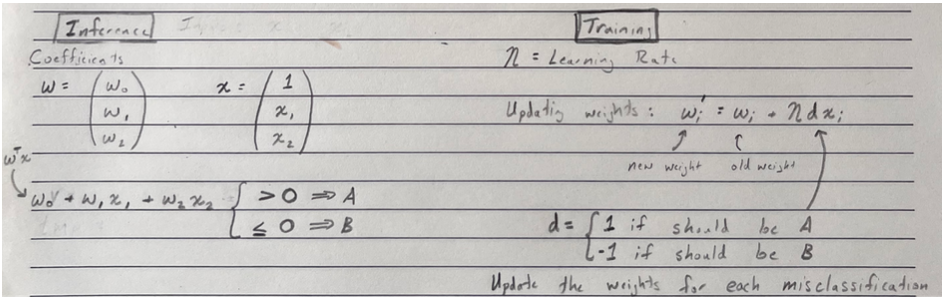 Inference
Coefficients
w = (w₀ w₁ w₂) x = (1 x₁ x₂)
wᵀx
w₀ + w₁x₁ + w₂x₂ { > 0 ⇒ A
≤ 0 ⇒ B
Training
η = Learning Rate
Updating weights : wᵢ' = wᵢ + η d xᵢ
new weight old weight
d = { 1 if should be A
-1 if should be B
Update the weights for each misclassification